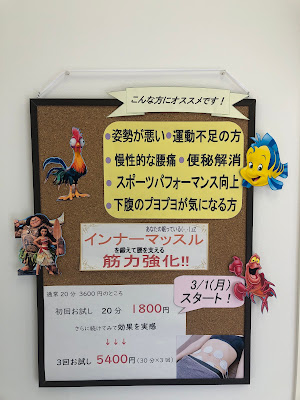 こんな方にオススメです！
●姿勢が悪い●運動不足の方
●慢性的な腰痛●便秘解消
●スポーツパフォーマンス向上
●下腹のプヨプヨが気になる方
インナーマッスル
を鍛えて腰を支える
筋力強化!!
3/1(月)
スタート！
通常20分 3600円のところ
初回お試し 20分 1800円
さらに続けてみて効果を実感
↓↓↓
3回お試し 5400円(30分×3回)